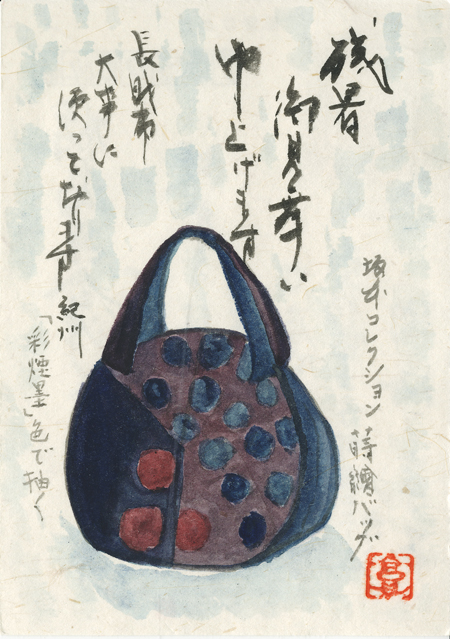 残暑
御見舞い
申し上げます
長財布
大事に
使っております
紀州
「彩煙墨」色で描く
坂本コレクション
蒔繪バッグ